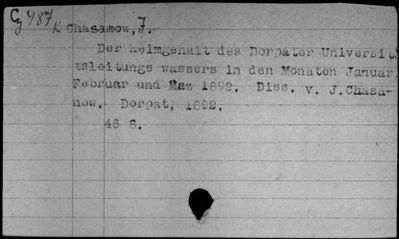 Cg 487
K Chasamow, J.
Der Keimgehalt des Dorpater Universit
tsleitungs wassers in den Monaten Januar,
Februar und Maz 1892. Diss. v. J.Chasa-
now. Dorpat, 1892.
46 S.